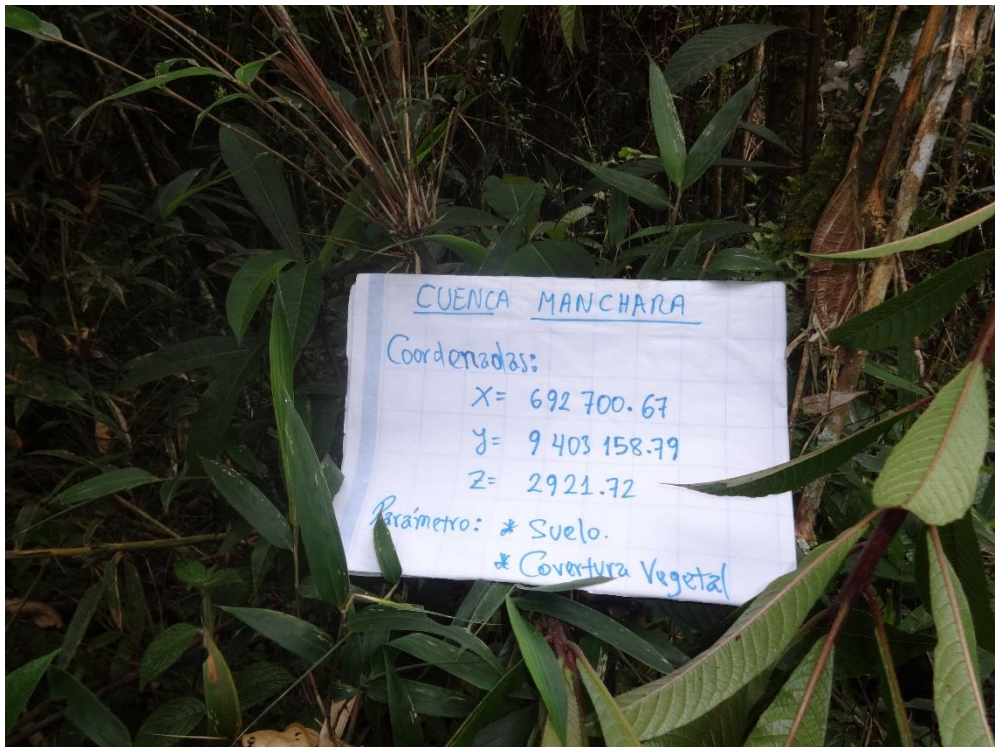 CUENCA MANCHARA
Coordenadas:
X= 692 700.67
y= 9 403 158.79
Z= 2921.72
Parámetro: * Suelo.
* Covertura Vegetal